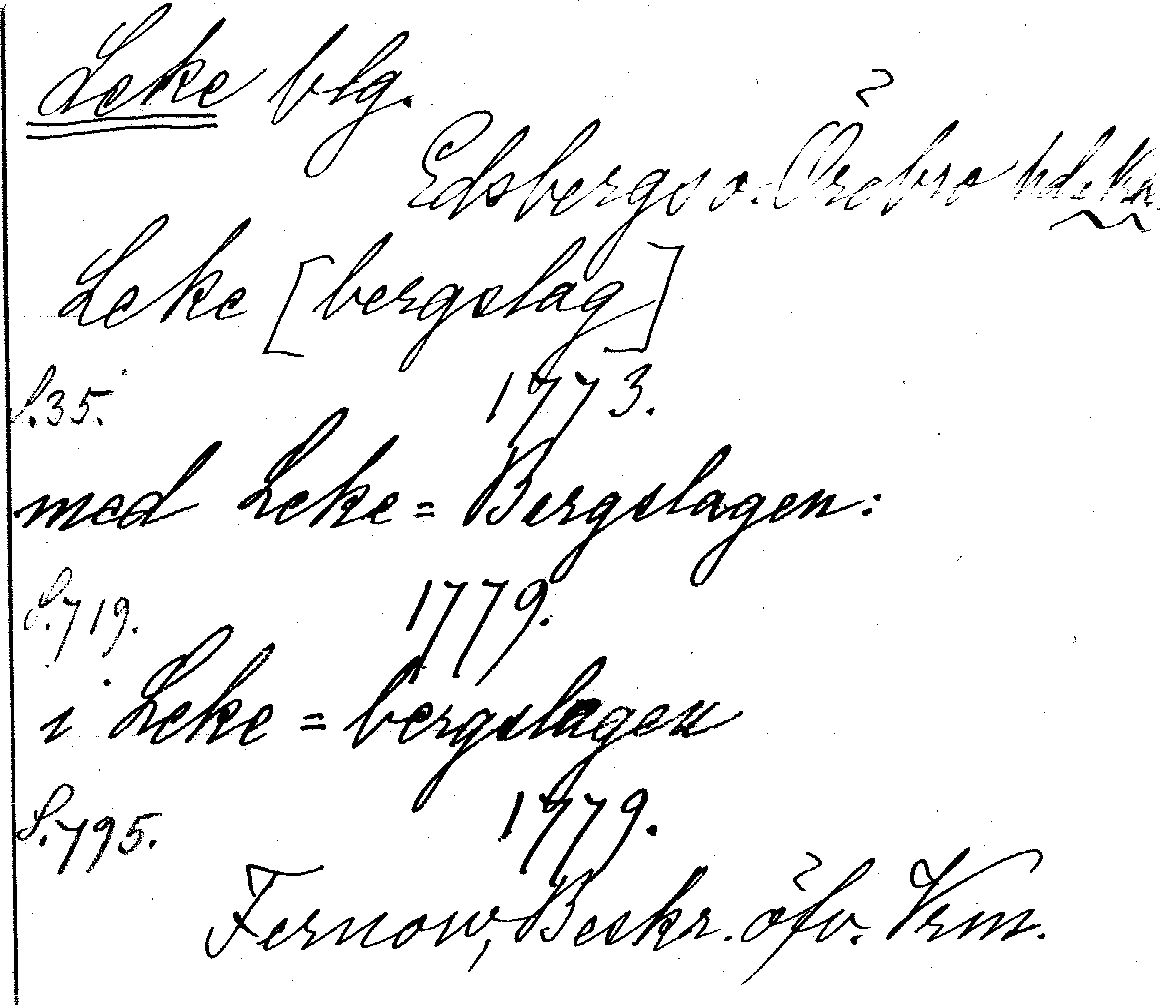 Leke blg.
Edsbergs o. Örebro hd
Leke [bergslag]
S.35. 1773.
med Leke = Bergslagen:
S.719. 1779.
i Leke = bergslagen
S.795. 1779.
Fernow, Beskr. öfv. Vrm.